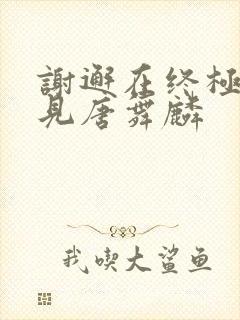 謝邂在终極
見唐舞麟
我喫大鲨鱼